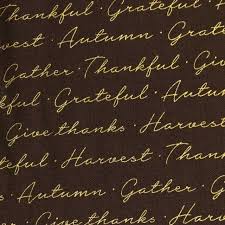 Thankful · Grateful ·
Harvest · Autumn · Grate
Gather · Thankful · Giv
eful · Grateful · Autumn ·
· Give thanks · Harvest
teful · Harvest · Thank
Autumn · Gather · G
er · Give thanks · Harves